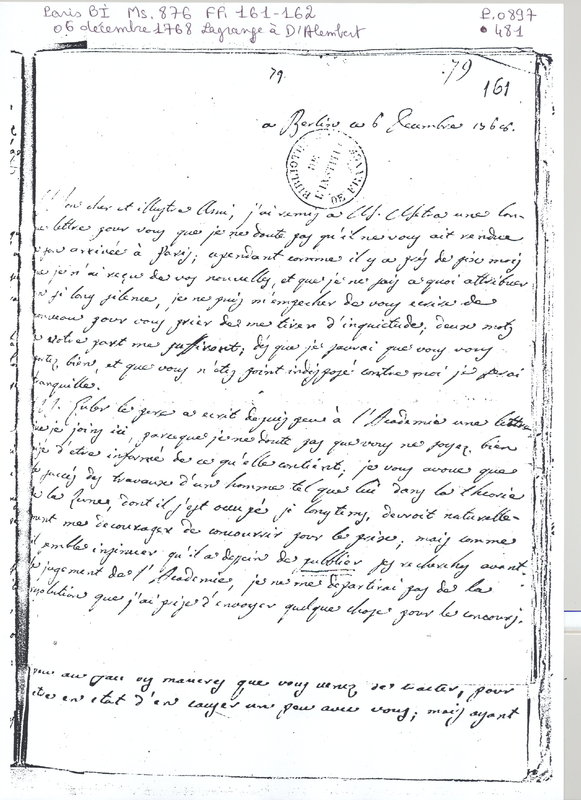 Paris BI Ms. 876 FF. 161-162 P.0897
06 décembre 1768 Lagrange à D'Alembert • 481
79. .79
161
a Berlin ce 6 Decembre 1768.
BIBLIOTH. DE L'INSTITUT DE FRANCE
Mon cher et illustre Ami, j'ai remis a M. Mstra une lon-
e lettre pour vous que je ne doute pas qu'il ne vous ait rendue
son arrivée à Paris; cependant comme il y a près de six mois
e je n'ai reçu de vos nouvelles, et que je ne sais a quoi attribuer
si long silence, je ne puis m'empecher de vous ecrire de
nouveau pour vous prier de me tirer d'inquietude; deux mots
e votre part me suffiront; dès que je saurai que vous vous
ortez bien, et que vous n'etes point indisposé contre moi je serai
tranquille.
M. Euler le pere a ecrit depuis peu à l'Academie une lettre
ue je joins ici, parceque je ne doute pas que vous ne soyez bien
aise d'être informé de ce qu'elle contient; je vous avoue que
e succès des travaux d'un homme tel que lui dans la theorie
e la Lune dont il s'est occupé si longtems, devroit naturelle-
ment me decourager de concourir pour le prix; mais comme
il semble insinuer qu'il a dessein de publier ses recherches avant
e jugement de l'Academie, je ne me departirai pas de la
resolution que j'ai prise d'envoyer quelque chose pour le concours.
que vous venez de traiter, pour
etre en etat d'en causer un peu avec vous; mais ayant